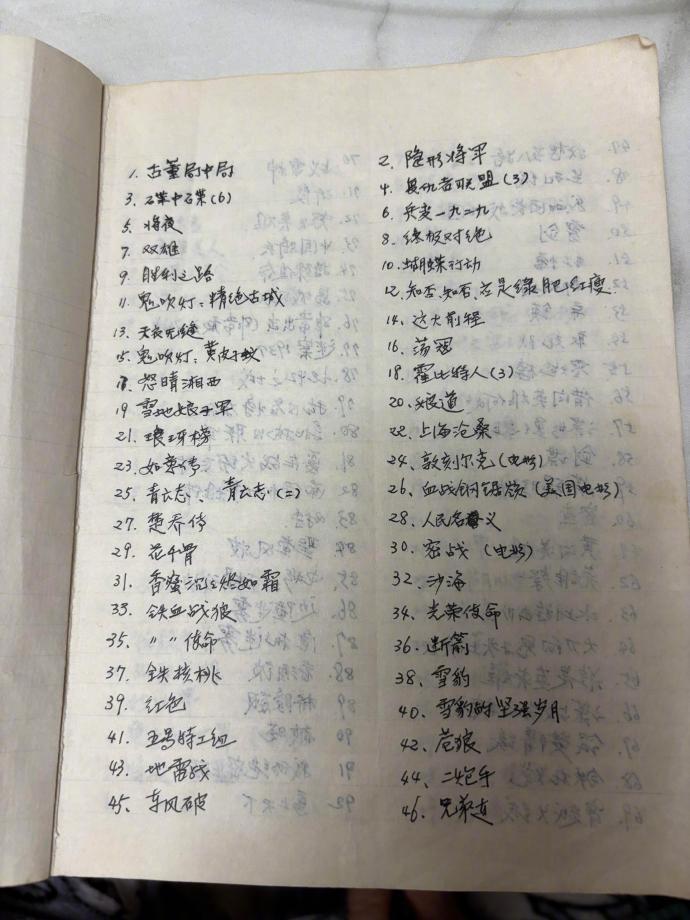 1. 古董局中局
2. 隐形将军
3. 碟中碟(6)
4. 复仇者联盟(3)
5. 将夜
6. 兵变一九二九
7. 双雄
8. 终极对绝
9. 胜利之路
10. 蝴蝶行动
11. 鬼吹灯：精绝古城
12. 知否，知否，应是绿肥红瘦
13. 天衣无缝
14. 这大前程
15. 鬼吹灯：黄皮子坟
16. 荡寇
17. 怒晴湘西
18. 霍比特人(3)
19. 雪地娘子军
20. 娘道
21. 琅琊榜
22. 上海沧桑
23. 如懿传
24. 敦刻尔克(电影)
25. 青云志、青云志(二)
26. 血战钢锯岭(美国电影)
27. 楚乔传
28. 人民名义
29. 花千骨
30. 密战(电影)
31. 香蜜沉沉烬如霜
32. 沙海
33. 铁血战狼
34. 光荣使命
35. 〃 〃 使命
36. 断箭
37. 铁核桃
38. 雪豹
39. 红色
40. 雪豹的坚强岁月
41. 五号特工组
42. 苍狼
43. 地雷战
44. 二炮手
45. 东风破
46. 兄弟连